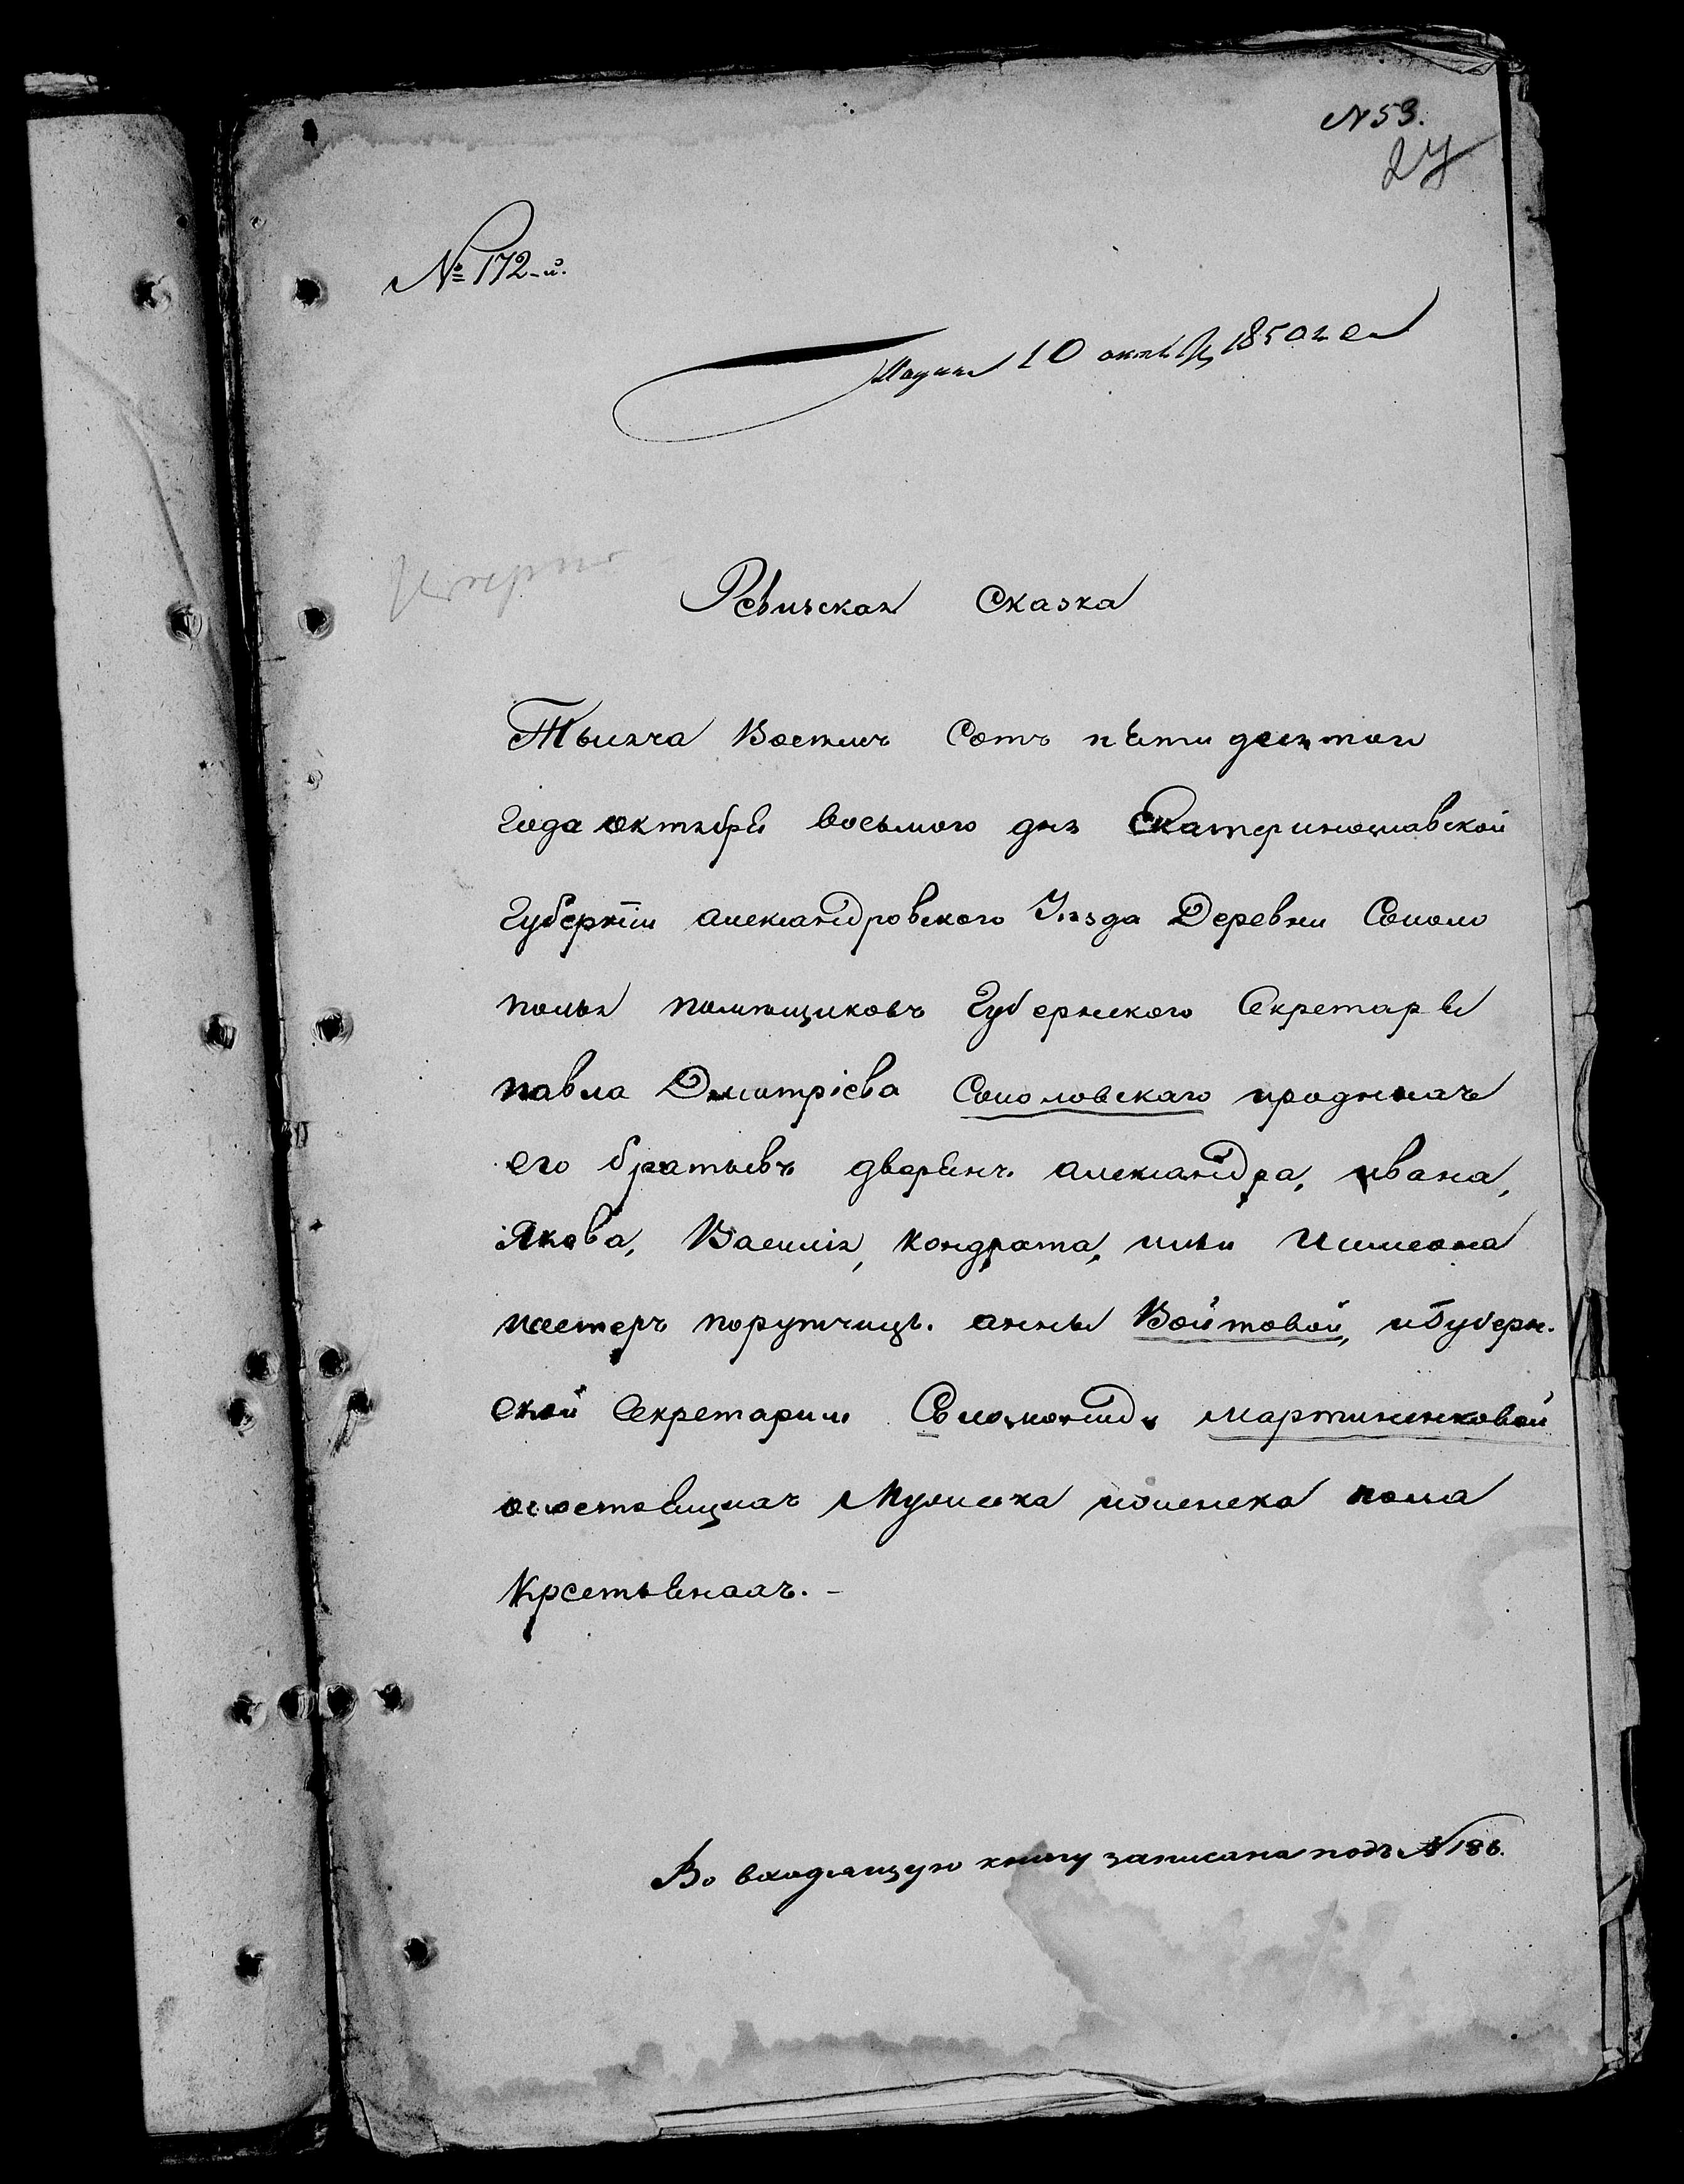 N 53.
27
№ 172-й.
10 окт 1850 го
Ревизская Сказка
Тысяча Восемь Сотъ пятидесятого
Года октября восьмого дня Екатеринославской
Губернiи александровского Уезда Деревни Соколо
полья помещиковъ Губернского Секретаря
павла Дмитрiева Соколовскаго
его братьевъ дворянъ александра, ивана,
Якова, Василiя, Кондрата,
сестеръ порутчицы анны Войтовой, и Губерн-
ской Секретарши мартыненковой
о состоящихъ Мужеска и женска пола
Крестьянахъ. -
Во входящую книгу записана подъ N 186.